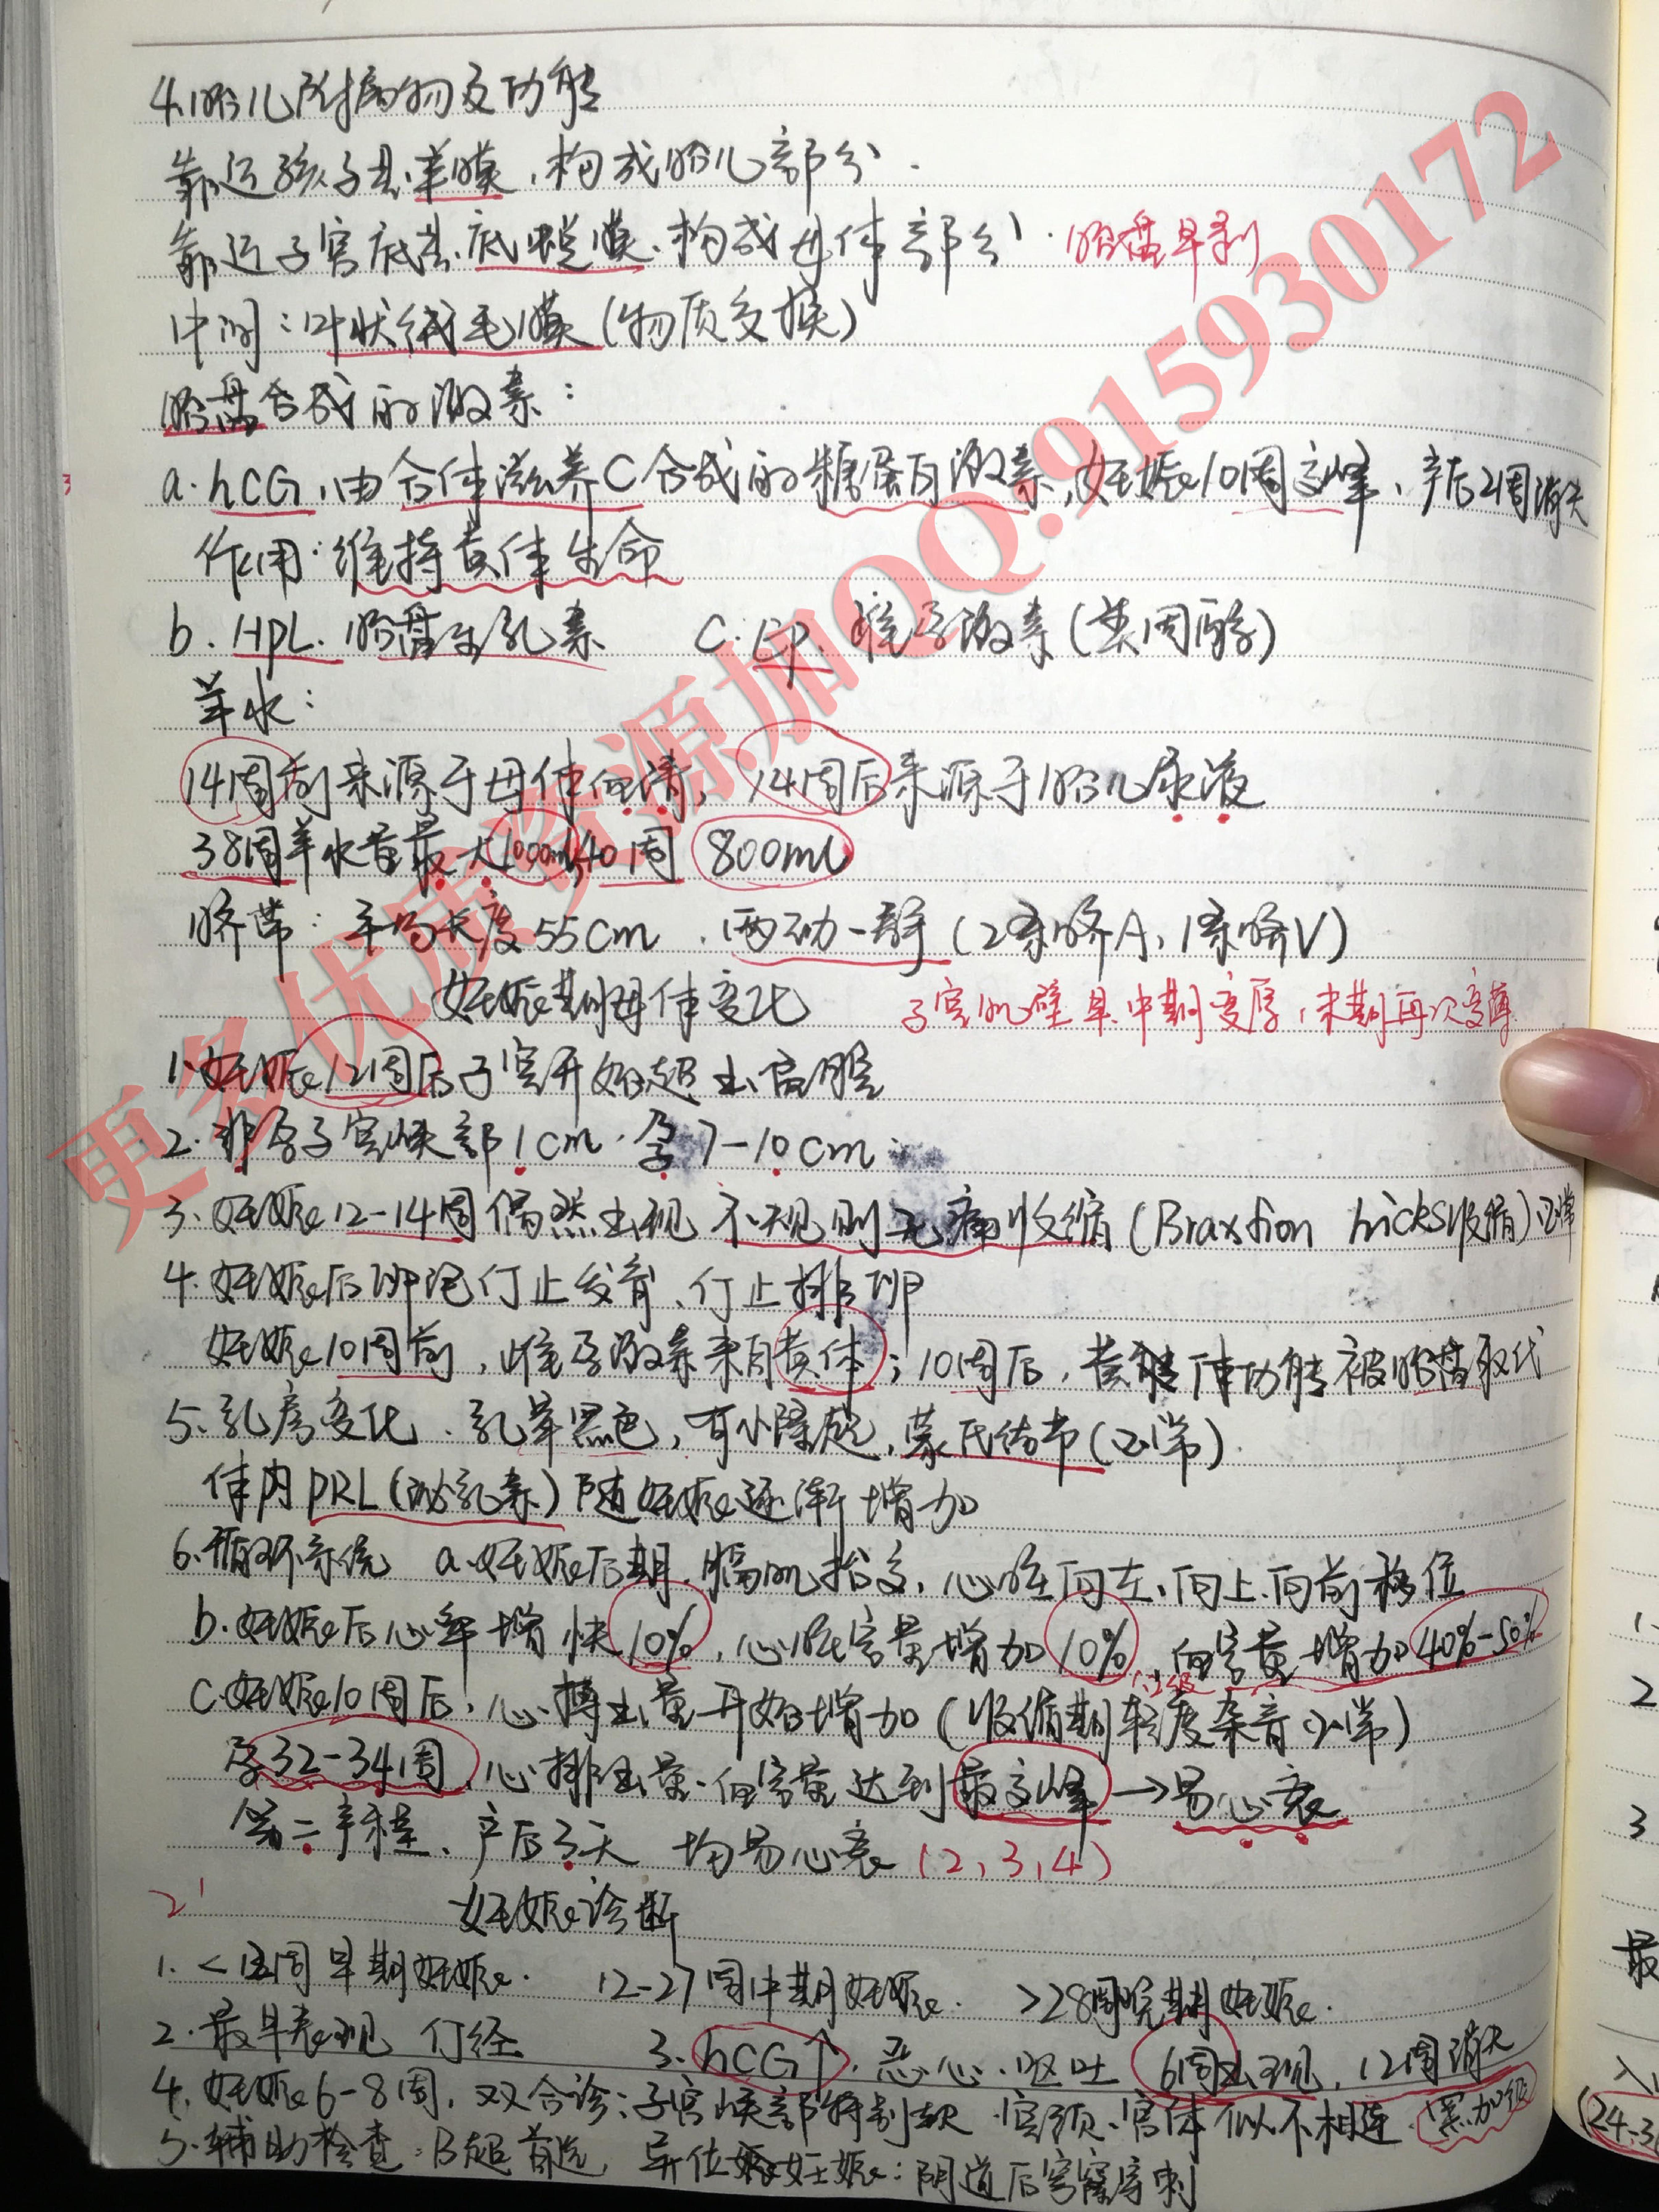 4.胎儿附属物及功能
靠近孩子是羊膜,构成胎儿部分.
靠近子宫底是底蜕膜.构成母体部分. 胎盘早剥
中间:叶状绒毛膜(物质交换)
胎盘合成的激素:
a.hCG,由合体滋养C合成的糖蛋白激素,妊娠10周高峰、产后2周消失
作用:维持黄体生命
b.HPL.胎盘生乳素 C.EP.雌孕激素(类固醇)
羊水:
14周前来源于母体血清,14周后来源于胎儿尿液
38周羊水量最大1000ml,40周 800ml
脐带:平均长度55cm.两动一静(2条脐A、1条脐V)
妊娠期母体变化 子宫肌壁早.中期变厚,末期再次变薄
1.妊娠12周后子宫开始超出盆腔
2.非孕子宫峡部1cm.孕7-10cm
3.妊娠12-14周偶然出现不规则无痛收缩(Braxtion hicks收缩)正常
4.妊娠后卵泡停止发育、停止排卵
妊娠10周前,雌孕激素来自黄体;10周后,黄体功能被胎盘取代
5.乳房变化、乳晕黑色,有小隆起,蒙氏结节(正常).
体内PRL(泌乳素)随妊娠逐渐增加
6.循环系统 a.妊娠后期.膈肌抬高,心脏向左、向上.向前移位
b.妊娠后心率增快10%,心脏容量增加10%,血容量增加40%-50%
C.妊娠10周后,心搏出量开始增加(收缩期轻度杂音正常)
孕32-34周,心排出量.血容量达到最高峰→易心衰
第二产程、产后3天 均易心衰(2,3,4)
2'
妊娠诊断
1.<12周早期妊娠. 12-27周中期妊娠. >28周晚期妊娠.
2.最早表现 停经 3.hCG↑,恶心.呕吐 6周出现,12周消失
4.妊娠6-8周,双合诊:子宫峡部特别软.宫颈、宫体似不相连.黑加征
5.辅助检查:B超首选,异位妊娠:阴道后穹窿穿刺